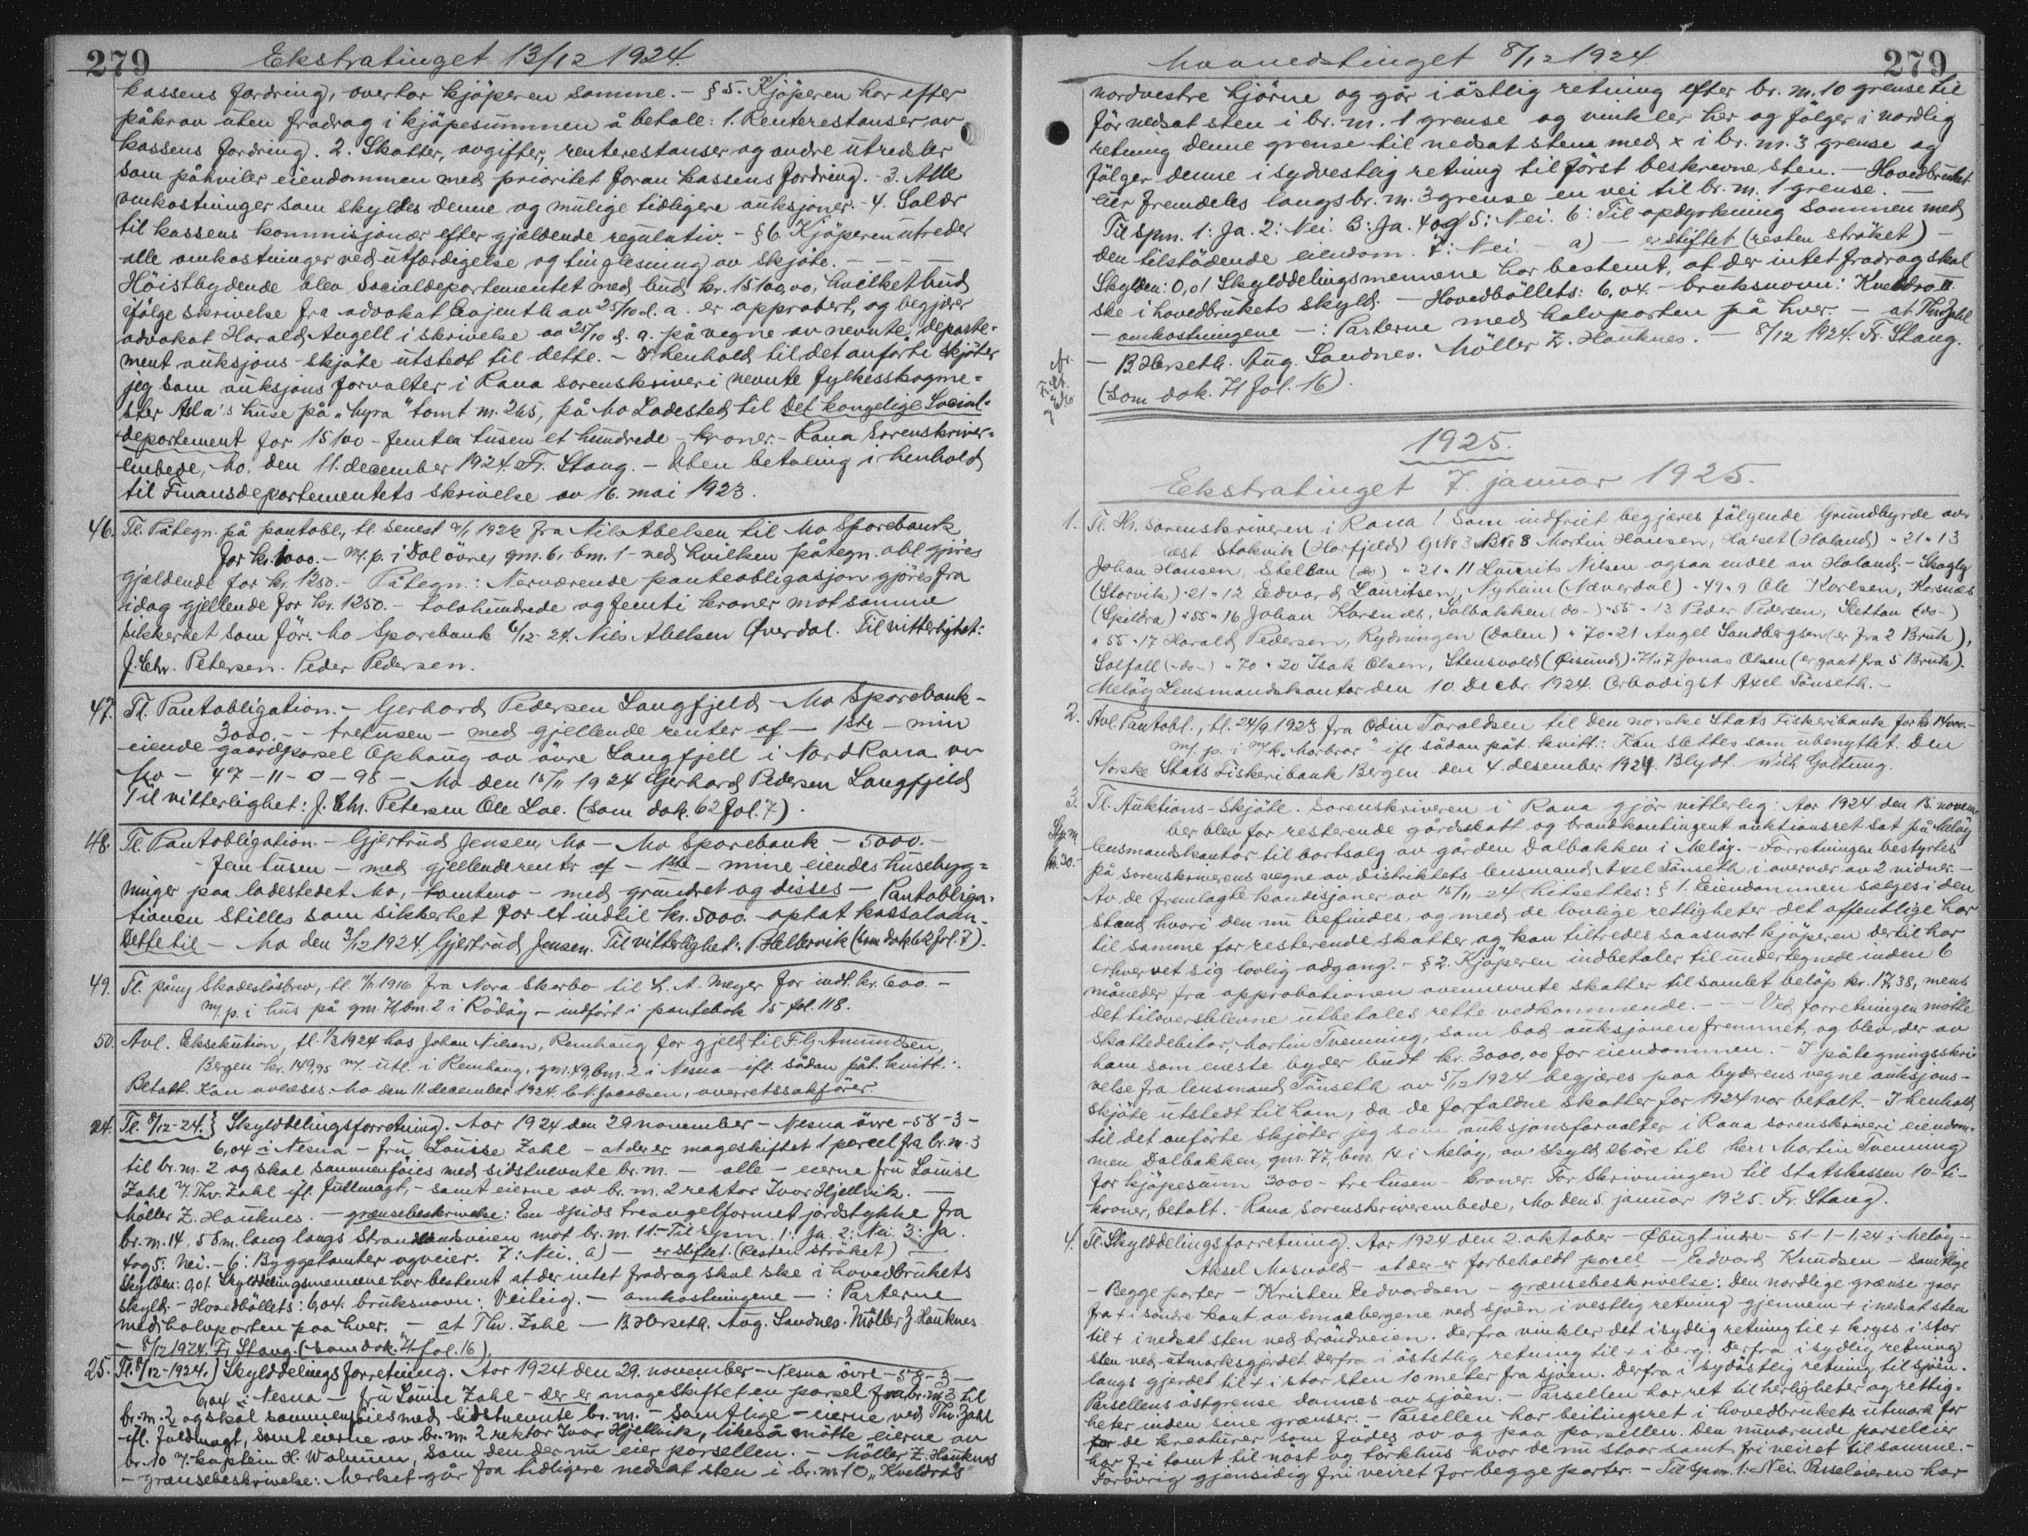 279
Ekstratinget 13/12 1924.
kassens fordring, overtar kjöperen samme. - § 5. Kjöperen har efter
påkrav uten fradrag i kjöpesummen å betale: 1. Renterestanser av
kassens fordring. 2. Skatter, avgifter, renterestanser og andre utredsler
som påhviler eiendommen med prioritet foran kassens fordring. - 3. Alle
omkostninger som skyldes denne og mulige tidligere auksjoner. - 4. Salær
til kassens kommisjonær efter gjældende regulativ. - § 6 Kjöperen utreder
alle omkostninger ved utfærdigelse og tinglesning av skjöte. - - - -
Höistbydende blev Socialdepartementet med bud kr. 15100,00, hvilket bud
ifölge skrivelse fra advokat av 25/10 d. a. er approbert, og begjærer
advokat Harald Angell i skrivelse av 25/10 d. a. på vegne av nevnte departe-
ment auksjons-skjöte utstedt til dette. - I henhold til det anförte skjöter
jeg som auksjonsforvalter i Rana sorenskriveri nevnte fylkesskogme-
ster Asla's huse på "Lyra" tomt m. 265, på Mo Ladested til Det kongelige Social-
departement for 15100 - femten tusen et hundrede - kroner. - Rana Sorenskriver-
embede, Mo, den 11. december 1924. Fr. Stang. - Uten betaling i henhold
til Finansdepartementets skrivelse av 16. mai 1923.
46. Tl. Påtegn. på pantobl., tl. senest 9/1 1924 fra Nils Abelsen til Mo Sparebank
for kr. 1000. - m/ p. i Dal övre, gm. 6, bm. 1 - ved hvilken påtegn. obl. gjöres
gjældende for kr. 1250. - Påtegn.: Nærværende panteobligasjon gjöres fra
idag gjellende for kr. 1250. - tolvhundrede og femti kroner mot samme
sikkerhet som för. Mo Sparebank 6/12-24. Nils Abelsen Överdal. Til vitterlighet:
J. Chr. Petersen. Peder Pedersen.
47. Tl. Pantobligation. - Gerhard Pedersen Langfjeld - Mo Sparebank -
3000. - - tretusen - med gjellende renter af - 1ste - min
eiende gaardparsel Ophaug av övre Langfjell i Nord Rana av
Mo - 47 - 11 - 0 - 98 - Mo den 15/11 1924 Gerhard Pedersen Langfjeld
Til vitterlighet: J. Chr. Petersen Ole Loe. (Som dok. 62 fol. 7).
48. Tl. Pantobligation - Gjertrud Jensen, Mo - Mo Sparebank - 5000. -
- femtusen - med gjellende renter af - 1ste - mine eiendes husebyg-
ninger paa ladestedet Mo, - tomteno - med grundret og disses - Pantobliga-
tionen stilles som sikkerhet for et indtil kr. 5000. - optat kassalaan -
Dette til - Mo den 3/12 1924. Gjertrud Jensen. Til vitterlighet: P. Hellervik (som dok. 62 fol. 7).
49. Tl. påny Skadeslösbrev, tl. 11/1 1916 fra Nora Skerbo til L. A. Meyer for indt. kr. 600. -
m/ p. i hus på gm. 71, bm. 2 i Rödöy - indfört i pantebok 15 fol. 118.
50. Avl. Eksekution, tl. 1/3 1924 hos Johan Nilsen, Remhaug, for gjeld til Flg. Amundsen,
Bergen kr. 149,95 m/ utl. i Remhaug, gm. 49, bm. 2 i Nesna - ifl. sådan påt. kvitt.:
Betalt. Kan avleses. Mo den 11. december 1924. C. N. Jacobsen, overretssakförer.
24. Tl. 8/12-24. } Skylddelingsforretning. Aar 1924 den 29 november - Nesna övre - 58 - 3 -
6,04 i Nesna - fru Louise Zahl - at der er mageskiftet 1 parcel fra br. m. 3
til br. m. 2 og skal sammenföies med sidstnevnte br. m. - alle - eierne fru Louise
Zahl v/ Thv. Zahl ifl. fullmagt, - samt eierne av br. m. 2 rektor Ivar Hjellvik. -
Möller Z. Hauknes. - grænsebeskrivelse: En spids treangelformet jordstykke fra
br. m. 14, 58 m. lang langs Strandlandsveien mot br. m. 11. - Til spm. 1: Ja. 2: Nei 3: Ja.
4 og 5: Nei. - 6: Byggetomter og veier. 7: Nei. a) - er stiftet. (Resten ströket) -
Skylden: 0,01 Skylddelingsmennene har bestemt at der intet fradrag skal ske i hovedbrukets
skyld. - Hovedböllets: 6,04. bruksnavn: Veiteig. - omkostningene - : Parterne
med halvparten paa hver. - at Thv. Zahl - B. Herseth. Aug. Sandnes. Möller Z. Hauknes
- 8/12 1924. Fr. Stang. (som dok. 71 fol. 16).
25. Tl. 8/12-1924. } Skylddelingsforretning. Aar 1924 den 29. november - Nesna övre - 58 - 3 -
6,04 i Nesna - fru Louise Zahl - der er mageskiftet en parsel fra br. m. 3 til
br. m. 2 og skal sammenföies med sidstnevnte br. m. - samtlige - eierne ved Thv. Zahl
ifl. fuldmagt, samt eierne av br. m. 2 rektor Ivar Hjellvik, likeså mötte eierne av
br. 10 v/ kaptein H. Walnum, som den der nu eier parsellen. - Möller Z. Hauknes
- grænsebeskrivelse: Merket går fra tidligere nedsat sten i br. m. 10 "Kveldrås"
Maanedstinget 8/12 1924
279
nordvestre hjörne og går i östlig retning efter br. m. 10 grense til
för nedsat sten i br. m. 1 grense og vinkler her og fölger i nordlig
retning denne grense til nedsat sten med x i br. m. 3 grense og
fölger denne i sydvestlig retning til först beskrevne sten. - Hovedbruket
eier fremdeles langs br. m. 3 grense en vei til br. m. 1 grense. -
Til spm. 1: Ja. 2: Nei. 3: Ja. 4 og 5: Nei. 6: Til opdyrkning sammen med
den tilstödende eiendom. 7: Nei - a) - er stiftet (resten ströket) -
Skylden: 0,01 Skylddelingsmennene har bestemt, at der intet fradrag skal
ske i hovedbrukets skyld. - Hovedböllets: 6,04. - bruksnavn: Kveldro II.
- omkostningene - : Parterne med halvparten på hver. - at Thv. Zahl
- B. Herseth. Aug. Sandnes. Möller Z. Hauknes. - 8/12 1924. Fr. Stang.
(som dok. 71 fol. 16).
1925.
Ekstratinget 7. januar 1925.
1. Tl. Hr. sorenskriveren i Rana! Som indfriet begjæres fölgende Grundbyrde av-
læst Stokvik (Horfjeld) G.No 3 B.No 8 Martin Hansen, Halset (Haland) " 21 " 13
Johan Hansen, (do) " 21 " 11 Laurits Nilsen ogsaa endel av Haland. - Skogly
(Storvik) " 21 " 12 Edvard Lauritsen, Nyheim (Næverdal) " 49 " 9 Ole Karlsen, Korsnes
(Spildra) " 55 " 16 Johan Korsnes, Solbakken (do-) " 55 " 13 Peder Pedersen, Slettan (do-)
" 55 " 17 Harald Pedersen, Rydningen (Dalen) " 70 " 21 Angel Sandbergsen (er fra 2 Bruk),
Solfall (-do-) " 70 " 20 Isak Olsen, Stensvold (Öisund) " 71 " 7 Jonas Olsen (er gaat fra 5 Bruk).
Melöy Lensmandskontor den 10 Decbr. 1924. Ærbödigst Axel Tönseth. -
2. Avl. Pantobl., tl. 24/9 1923 fra Odin Toraldsen til den norske Stats Fiskeribank for kr. 14000. -
m/ p. i m/k. "Mårbror" ifl. sådan påt. kvitt.: Kan slettes som ubenyttet. Den
Norske Stats Fiskeribank Bergen den 4. desember 1924. Blydt. Wilh. Galtung.
3. Tl. Auktions-Skjöte. Sorenskriveren i Rana gjör vitterlig: Aar 1924 den 15. novem-
ber blev for resterende gårdsskatt og brandkontingent auktionsret sat på Melöy
lensmandskontor til bortsalg av gården Dalbakken i Melöy. - Forretningen bestyrtes
på sorenskriverens vegne av distriktets lensmand Axel Tönseth i overvær av 2 vidner. -
Av de fremlagte kondisjoner av 15/11-24 hitsettes: § 1. Eiendommen selges i den
stand hvori den nu befindes, og med de lovlige rettigheter det offentlige har
til samme for resterende skatter og kan tiltredes saasnart kjöperen dertil har
erhvervet sig lovlig adgang. - § 2. Kjöperen indbetaler til undertegnede inden 6
måneder fra approbationen ovennevnte skatter til samlet belöp kr. 17,38, mens
det tiloversblevne utbetales rette vedkommende. - - - Ved forretningen mötte
skattedebitor, Martin Tvenning, som bad auksjonen fremmet, og blev der av
ham som eneste byder budt kr. 3000,00 for eiendommen. - I påtegningsskri-
velse fra lensmand Tönseth av 5/12 1924 begjæres paa byderens vegne auksjons-
skjöte utstedt til ham, da de forfaldne skatter for 1924 var betalt. - I henhold
til det anförte skjöter jeg som auksjonsforvalter i Rana sorenskriveri eiendom-
men Dalbakken, gm. 77, bm. 14 i Melöy, av skyld 26 öre til herr Martin Tvenning
for kjöpesum 3000 - tre tusen - kroner. For skrivningen til statskassen 10 - ti -
kroner, betalt. - Rana Sorenskriverembede, Mo den 5. januar 1925. Fr. Stang.
4. Tl. Skylddelingsforretning. Aar 1924 den 2. oktober - Öbugt indre - 51 - 1 - 1,24 i Melöy -
Aksel Masvold - at der er forbeholdt parcel - Edvard Knudsen - Samtlige
- Begge parter - Kristen Edvardsen - grænsebeskrivelse: Den nordlige grænse gaar
fra + i söndre kant av smaabergene ved sjöen i vestlig retning gjennem + i nedsat sten
til + i nedsat sten ved bröndveien. Derfra vinkler det i sydlig retning til + kryss i stor
sten ved utmarksgjerdet derfra i östlig retning til + i berg. Derfra i sydlig retning
langs gjerdet til + i stor sten 10 meter fra sjöen. Derfra i sydöstlig retning til sjöen.
Parsellens östgrense dannes av sjöen. - Parsellen har ret til herligheter og rettig-
heter inden sine grænser. - Parsellen har beitingsret i hovedbrukets utmark for
de kreaturer som födes av og paa parsellen. Den nuværende parseleier
har fri tomt til nöst og törkhus hvor de nu staar samt fri veiret til samme. -
Forövrig gjensidig fri veiret for begge parter. - Til spm. 1: Nei Parseleieren har